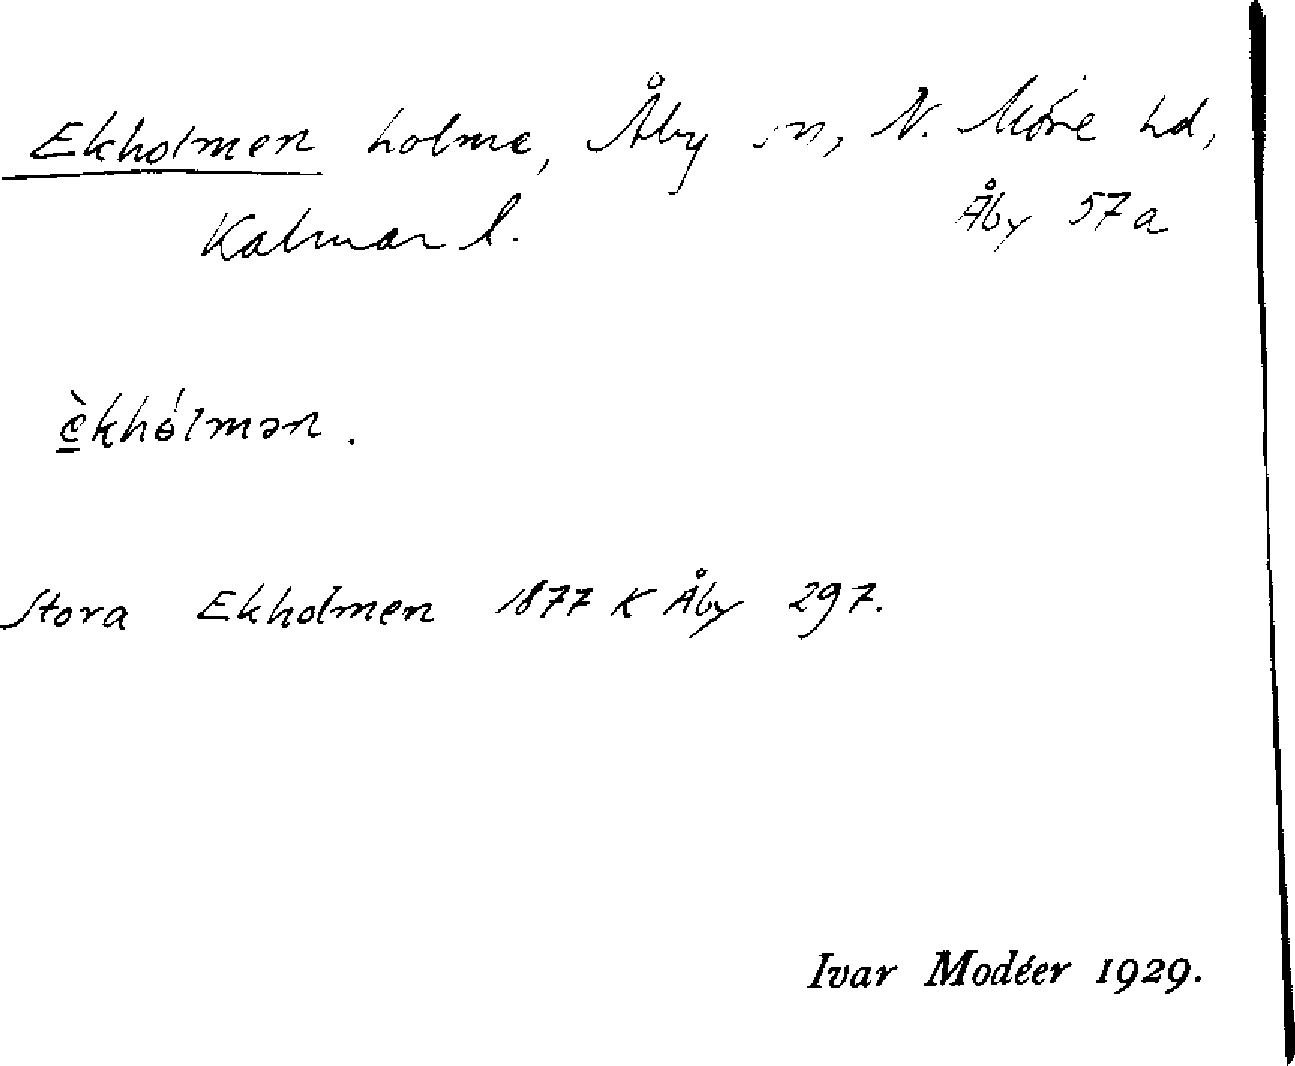 Ekholmen holme, Åby sn, N. Möre hd,
Kalmar l. Åby 57a
èkhólmən.
Stora Ekholmen 1877 K Åby 297.
Ivar Modéer 1929.